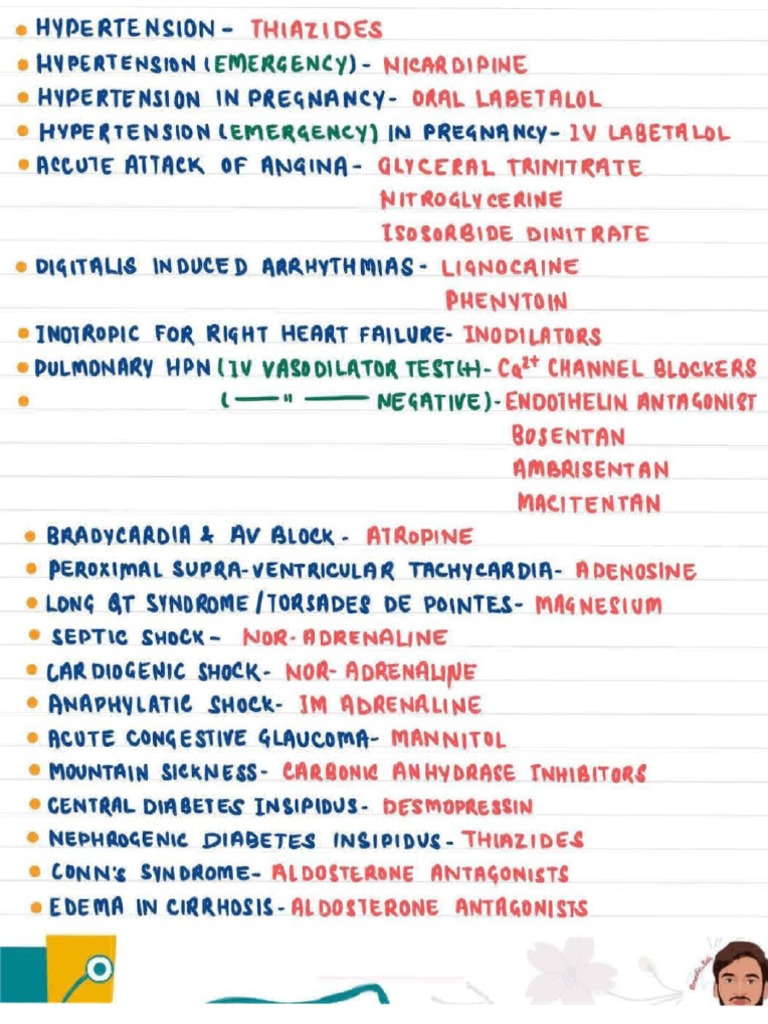 • HYPERTENSION - THIAZIDES
• HYPERTENSION (EMERGENCY) - NICARDIPINE
• HYPERTENSION IN PREGNANCY - ORAL LABETALOL
• HYPERTENSION (EMERGENCY) IN PREGNANCY - IV LABETALOL
• ACCUTE ATTACK OF ANGINA - GLYCERAL TRINITRATE
NITROGLYCERINE
ISOSORBIDE DINITRATE
• DIGITALIS INDUCED ARRHYTHMIAS - LIGNOCAINE
PHENYTOIN
• INOTROPIC FOR RIGHT HEART FAILURE - INODILATORS
• PULMONARY HPN (IV VASODILATOR TEST(+) - Ca²⁺ CHANNEL BLOCKERS
• (—— " —— NEGATIVE) - ENDOTHELIN ANTAGONIST
BOSENTAN
AMBRISENTAN
MACITENTAN
• BRADYCARDIA & AV BLOCK - ATROPINE
• PEROXIMAL SUPRA-VENTRICULAR TACHYCARDIA - ADENOSINE
• LONG QT SYNDROME/TORSADES DE POINTES - MAGNESIUM
• SEPTIC SHOCK - NOR-ADRENALINE
• CARDIOGENIC SHOCK - NOR-ADRENALINE
• ANAPHYLATIC SHOCK - IM ADRENALINE
• ACUTE CONGESTIVE GLAUCOMA - MANNITOL
• MOUNTAIN SICKNESS - CARBONIC ANHYDRASE INHIBITORS
• CENTRAL DIABETES INSIPIDUS - DESMOPRESSIN
• NEPHROGENIC DIABETES INSIPIDUS - THIAZIDES
• CONN'S SYNDROME - ALDOSTERONE ANTAGONISTS
• EDEMA IN CIRRHOSIS - ALDOSTERONE ANTAGONISTS